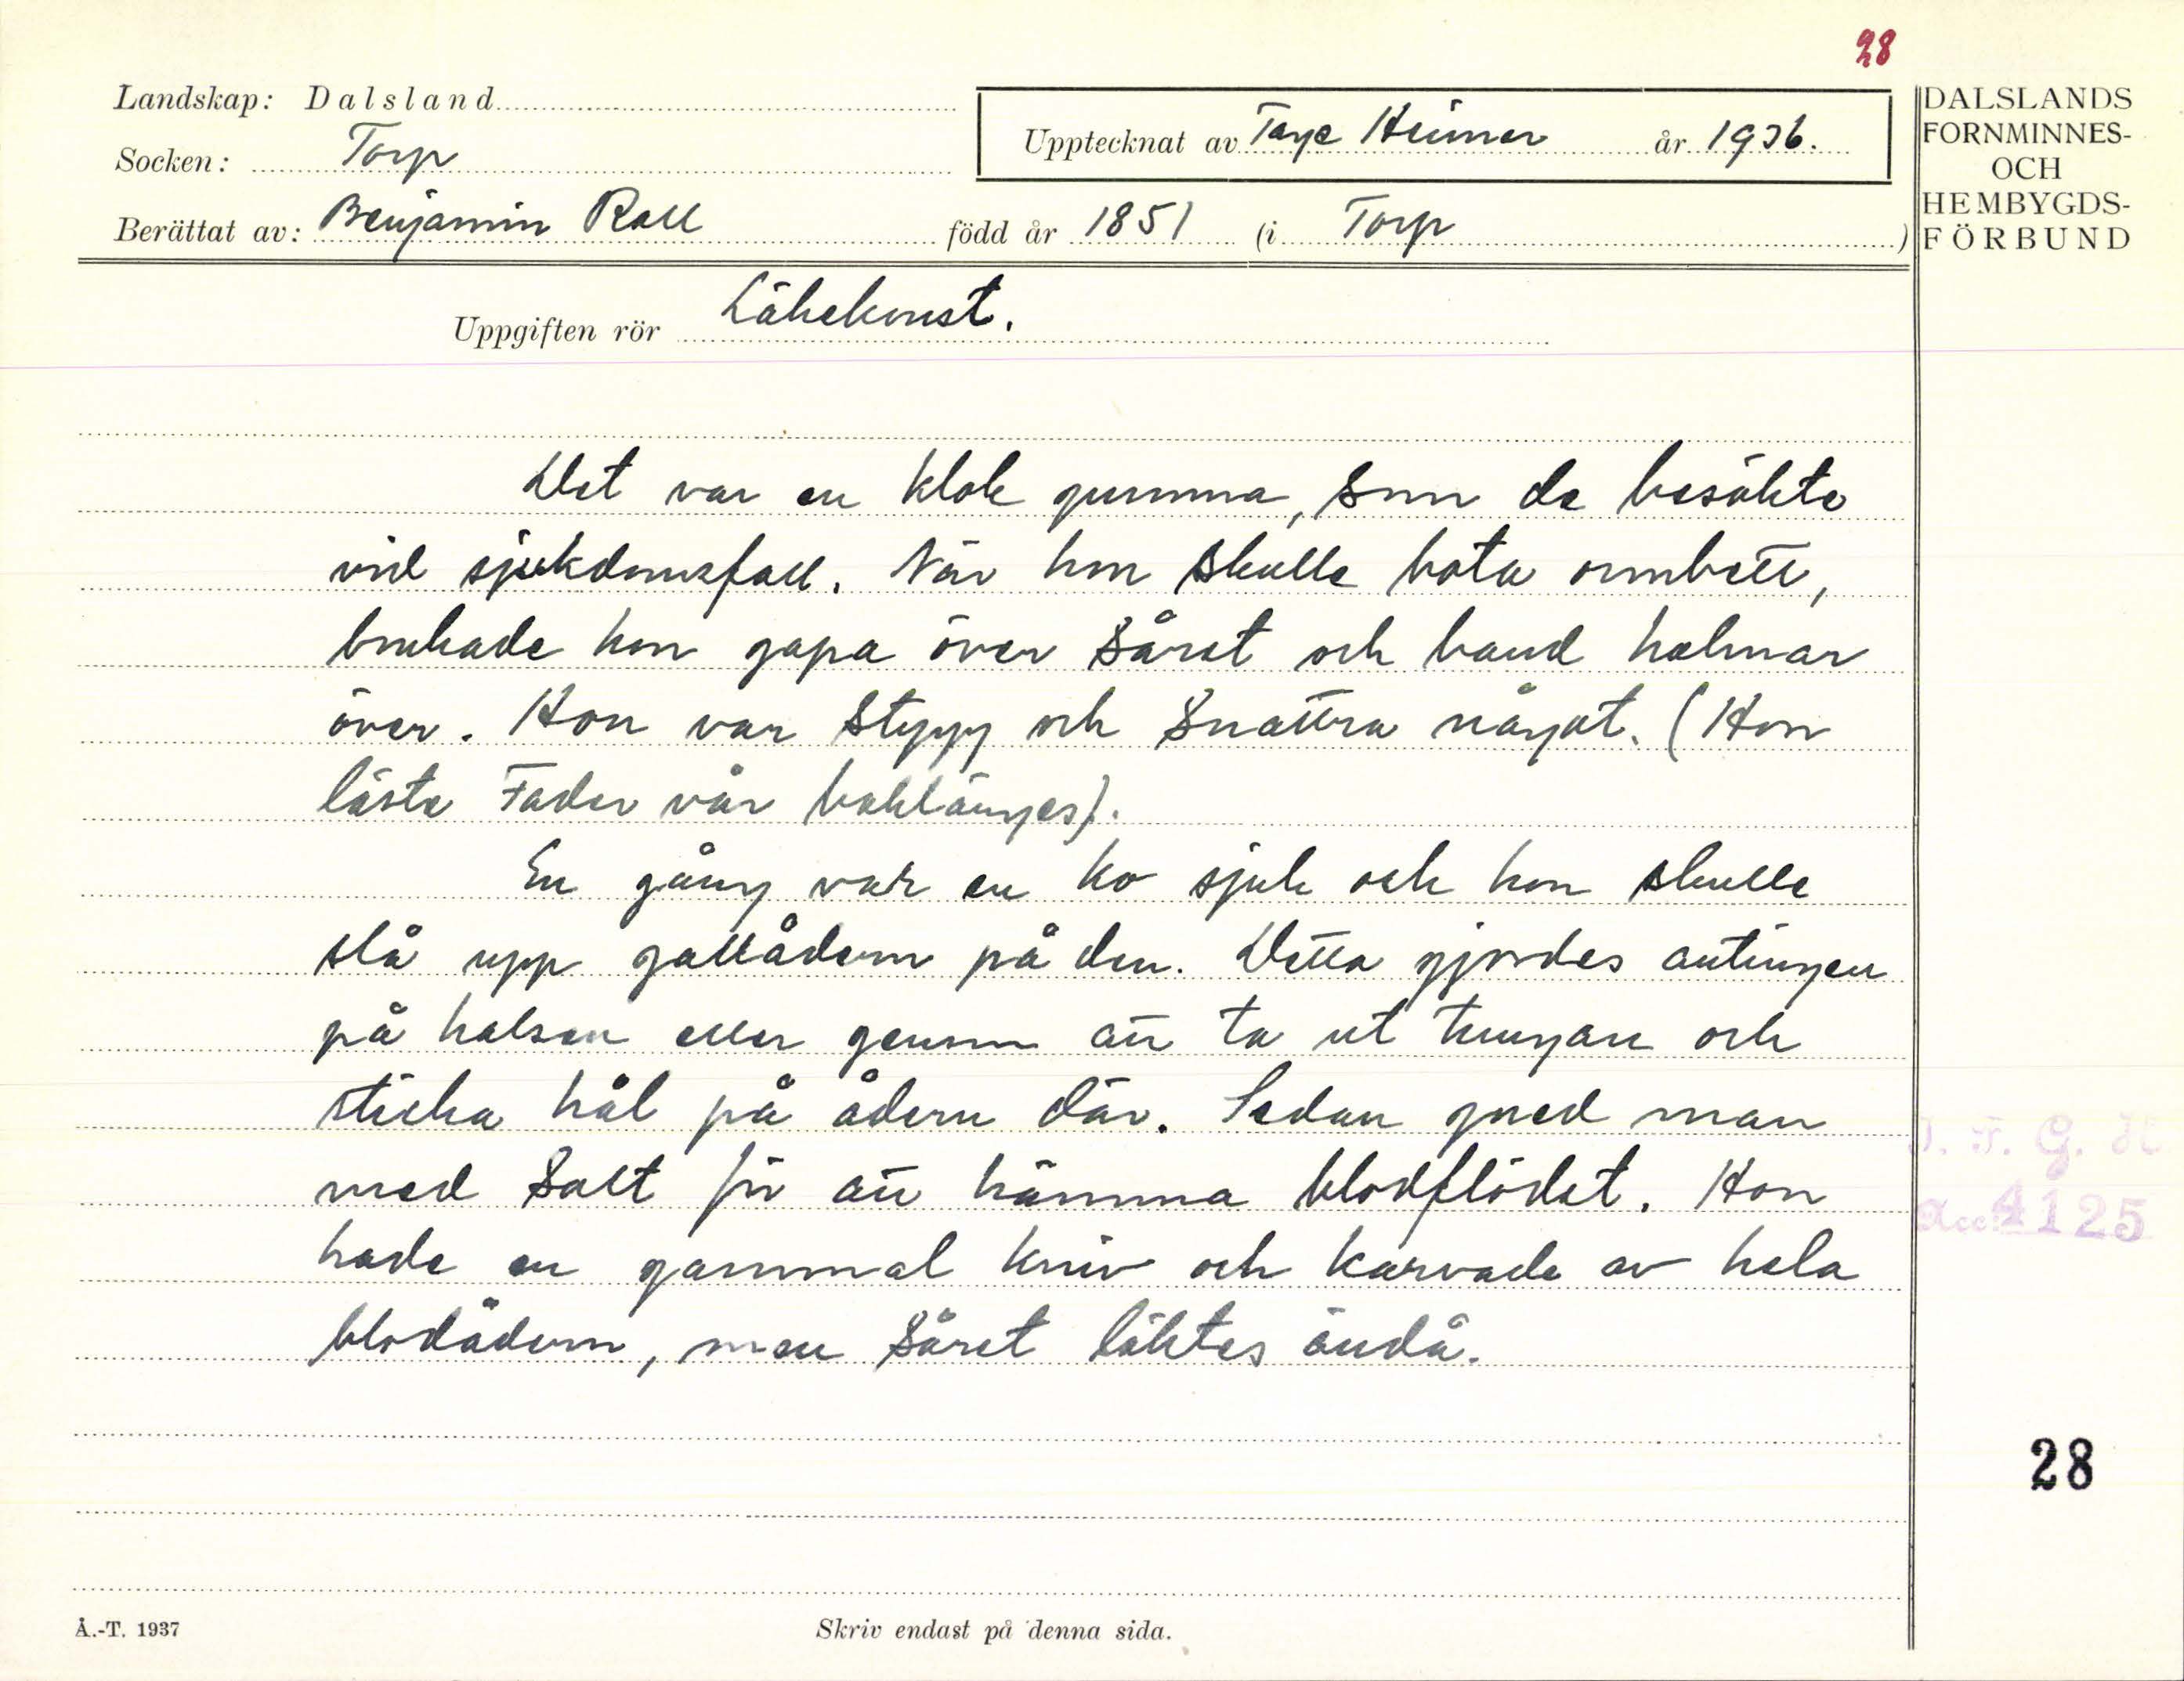 28
Landskap: Dalsland
Socken: Torp
Berättat av: Benjamin Rall
Upptecknat av Tage Heimer år 1936.
född år 1851 (i Torp)
DALSLANDS
FORNMINNES-
OCH
HEMBYGDS-
FÖRBUND
Uppgiften rör Läkekonst.
Det var en klok gumma, som de besökte
vid sjukdomsfall. När hon skulle bota ormbett,
brukade hon gapa över såret och band halmar
över. Hon var stygg och snattra något. (Hon
läste Fader vår baklänges).
En gång var en ko sjuk och hon skulle
slå upp gallådern på den. Detta gjordes antingen
på halsen eller genom att ta ut tungan och
sticka hål på ådern där. Sedan gned man
med salt för att hämma blodflödet. Hon
hade en gammal kniv och karvade av hela
blodådern, men såret läktes ändå.
I. F. G. H
Acc. 4125
28
Å.-T. 1937
Skriv endast på denna sida.